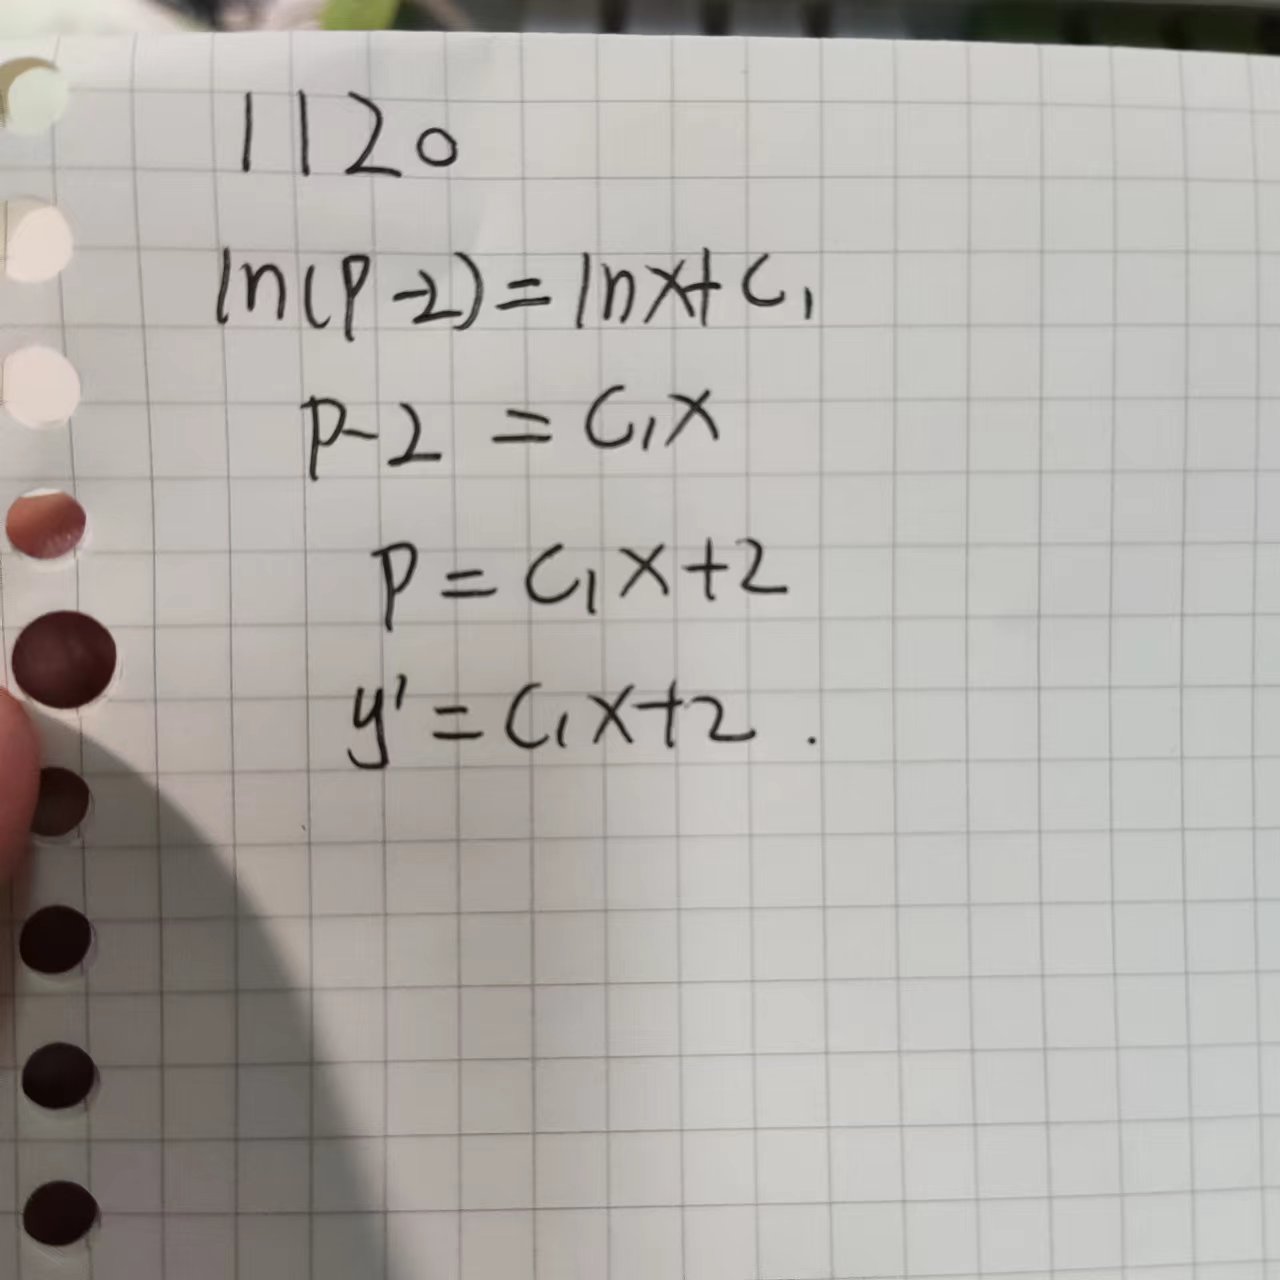 1120
ln(p-2)=lnx+C₁
p-2=C₁x
p=C₁x+2
y'=C₁x+2.